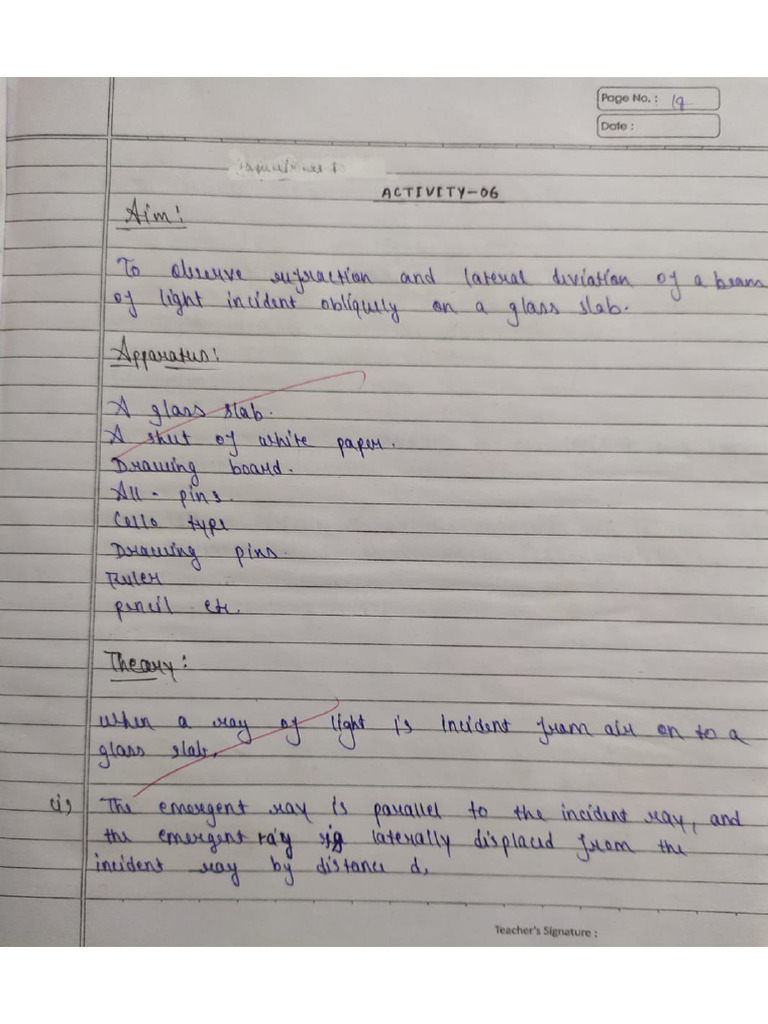 Page No. : 19
Date :
ACTIVITY-06
Aim:
To observe refraction and lateral diviation of a beam
of light incident obliquely on a glass slab.
Apparatus:
A glass slab.
A sheet of white paper.
Drawing board.
All - pins.
Cello type
Drawing pins.
Ruler
pencil etc.
Theory:
When a ray of light is incident from air on to a
glass slab,
(i) The emergent ray is parallel to the incident ray, and
the emergent ray is laterally displaced from the
incident ray by distance d,
Teacher's Signature :